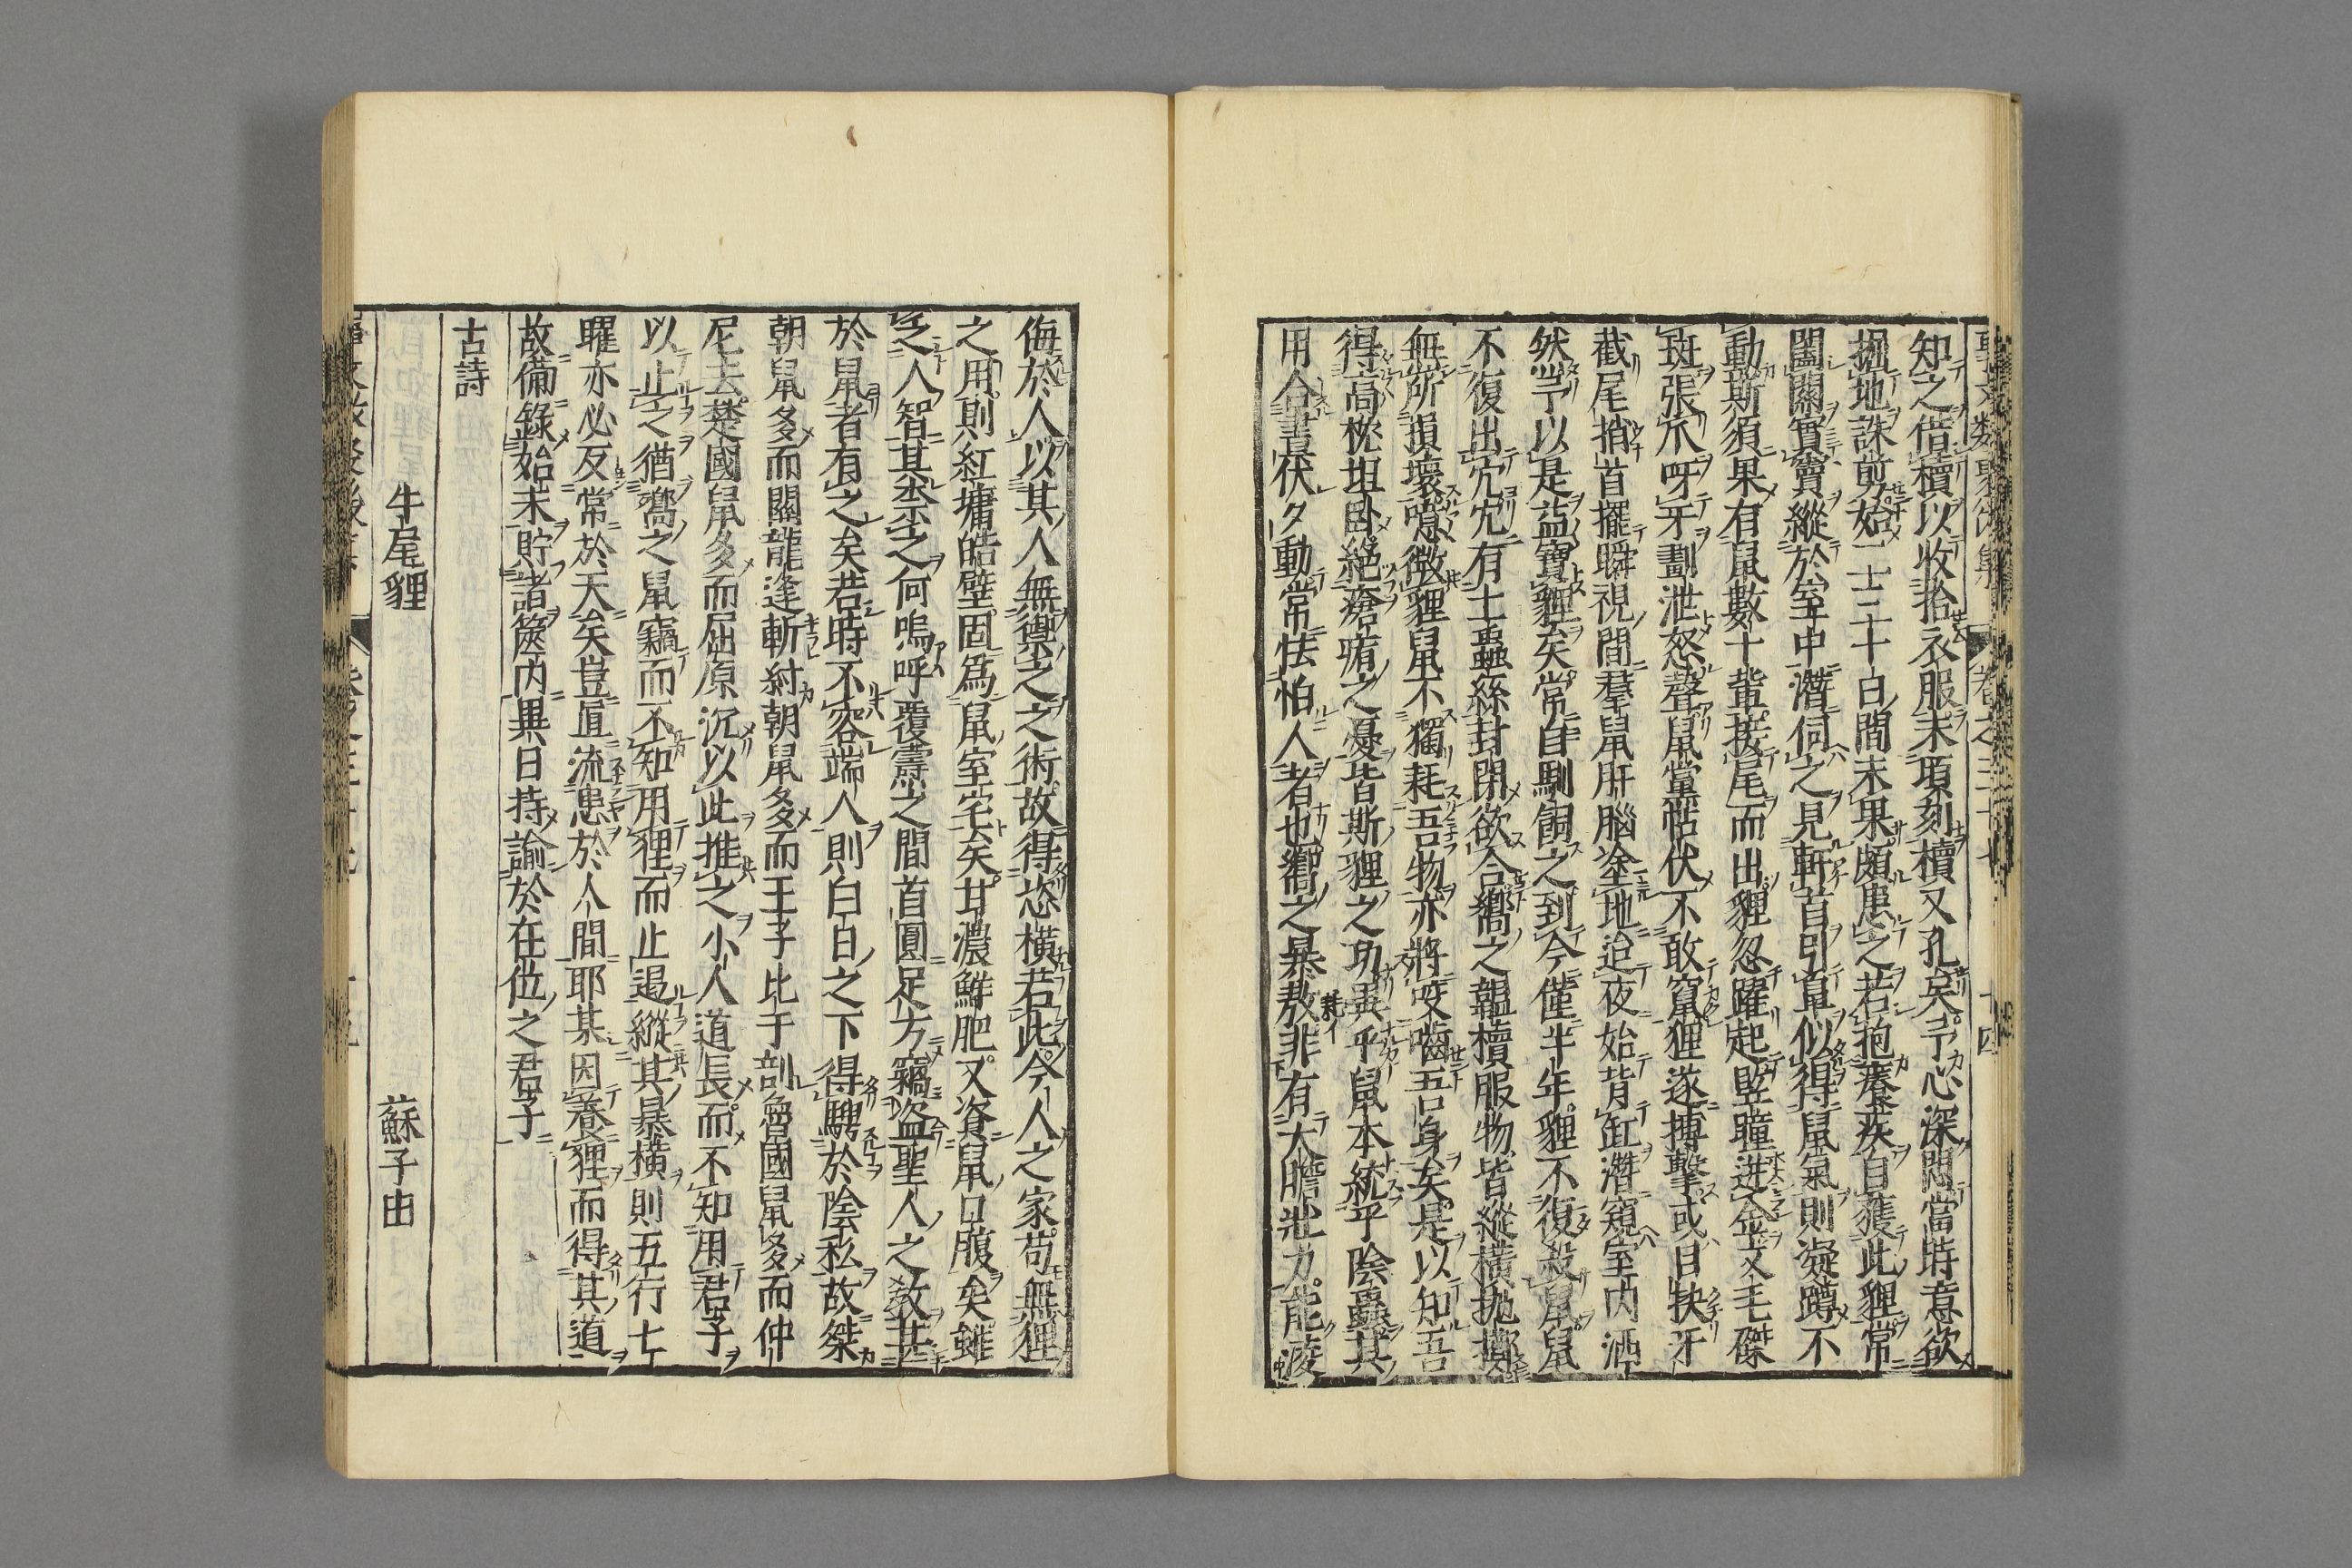 知之借櫝以收拾衣服未頃刻櫝又孔矣予心深悶當時意欲
掘地誅剪始一二三十日間未果頗患之若抱癢疾自獲此狸常
闔關實竇縱於室中潛伺之見軒首引鼻似得鼠氣則凝蹲不
動斯須果有鼠數十輩接尾而出狸忽躍起竪瞳迸金文毛磔
斑張爪呀牙劃泄怒聲鼠黨帖伏不敢竄狸遂搏擊或目抉牙
截尾捎首擺瞬視間羣鼠肝腦塗地迨夜始背缸潛窺室内洒
然予以是益寶狸矣常自馴飼之到今僅半年狸不復殺鼠鼠
不復出穴穴有土蟲絲封閉欲合嚮之韞櫝服物皆縱橫抛擲
無所損壞噫微狸鼠不獨耗吾物亦將咬嚙吾身矣是以知吾
得高枕坦臥絶瘡痏之憂皆斯狸之功異乎鼠本統乎陰蟲其
用合晝伏夕動常怯怕人者也嚮之暴耗非有大膽壯力能凌
侮於人以其人無禦之之術故得恣橫若此今人之家苟無狸
之用則紅墉皓壁固爲鼠室宅矣甘濃鮮肥又資鼠口腹矣雖
乏人智其柰之何嗚呼覆燾之間首圓足方竊盜聖人之教甚
於鼠者有之矣若時不容端人則白日之下得騁於陰私故桀
朝鼠多而關龍逢斬紂朝鼠多而王子比干剖魯國鼠多而仲
尼去楚國鼠多而屈原沉以此推之小人道長而不知用君子
以止之猶嚮之鼠竊而不知用狸而止遏縱其暴橫則五行七
曜亦必反常於天矣豈直流患於人間耶某因養狸而得其道
故備錄始末貯諸篋内異日持諭於在位之君子
古詩
牛尾狸　蘇子由